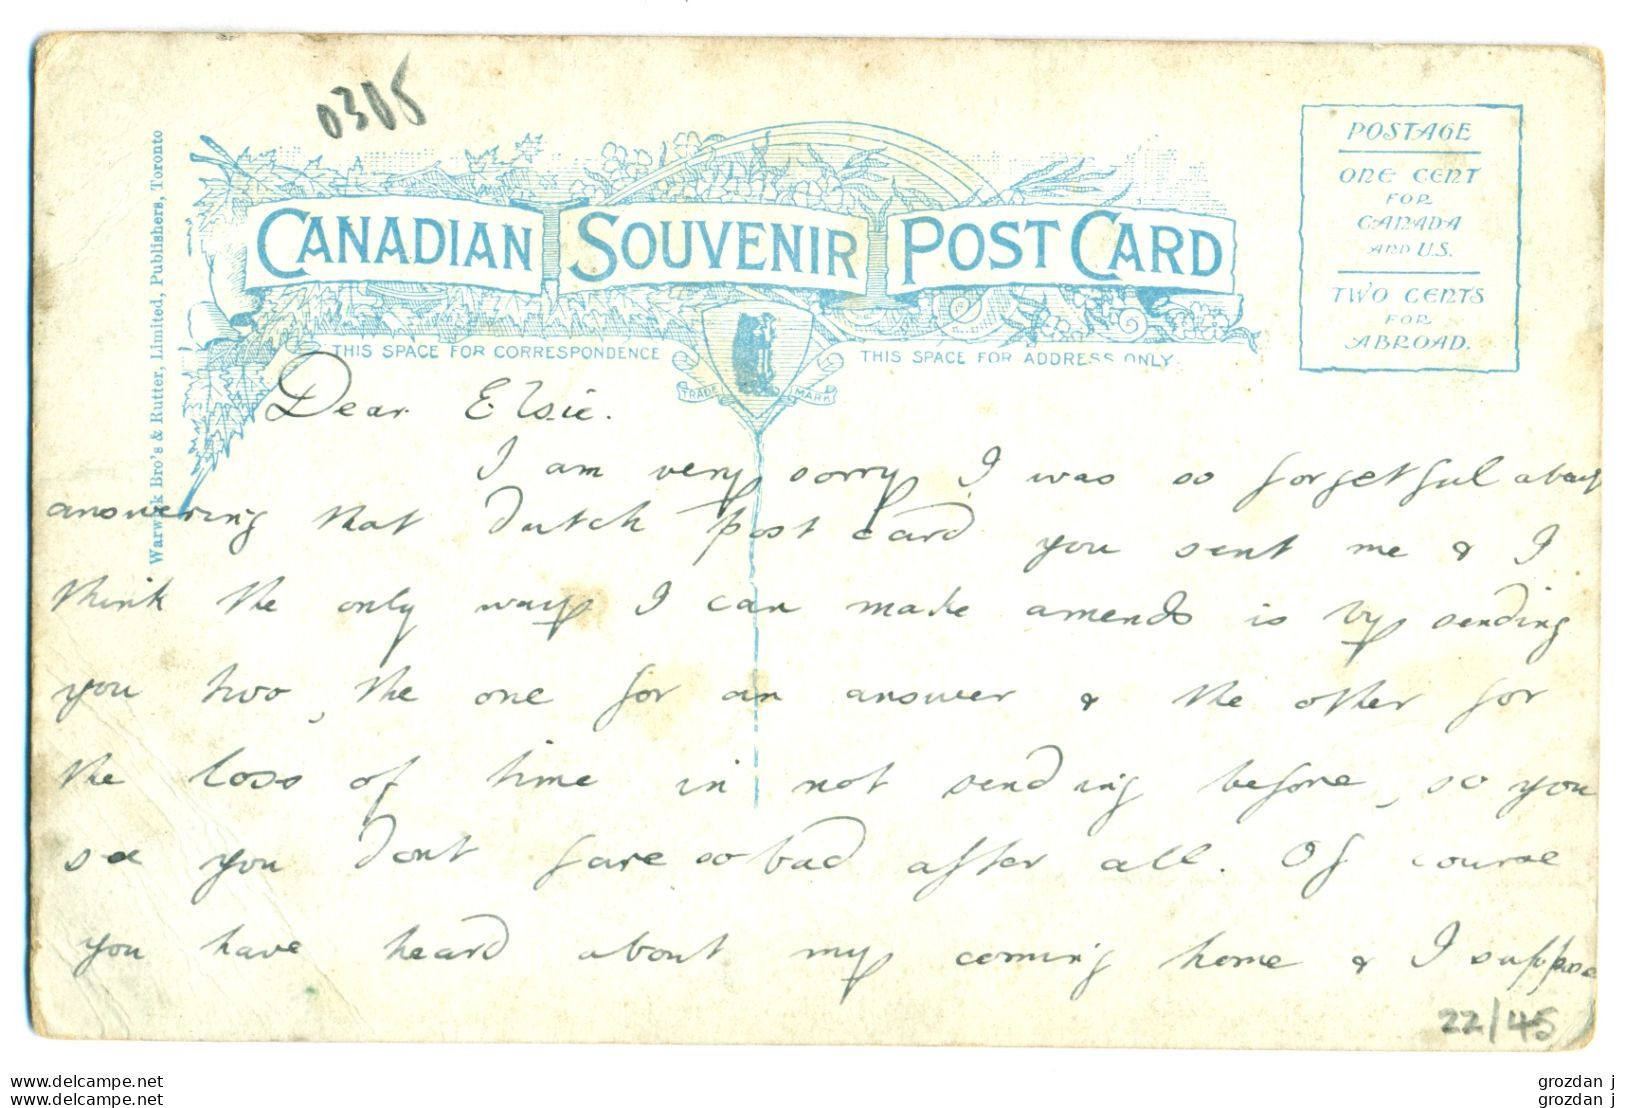 0305
Warwick Bro's & Rutter, Limited., Publishers, Toronto
CANADIAN SOUVENIR POST CARD
POSTAGE
ONE CENT
FOR
CANADA
AND U.S.
TWO CENTS
FOR
ABROAD.
THIS SPACE FOR CORRESPONDENCE
THIS SPACE FOR ADDRESS ONLY.
TRADE MARK
Dear Elsie.
I am very sorry I was so forgetful about
answering that dutch post card you sent me & I
think the only way I can make amends is by sending
you two, the one for an answer & the other for
the loss of time in not sending before, so you
see you dont fare so bad after all. Of course
you have heard about my coming home & I suppose
22/45
www.delcampe.net
www.delcampe.net
grozdan j
grozdan j